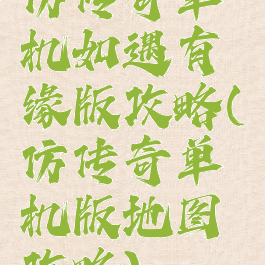 仿传奇单
机如遇有
缘版攻略(
仿传奇单
机版地图
攻略)